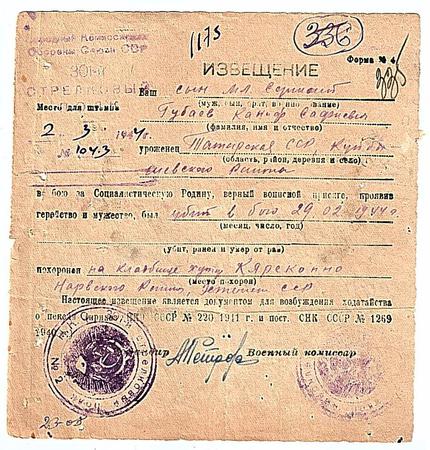 1175
336
Народный Комиссариат
Обороны Союза ССР
Форма № 4
335
ИЗВЕЩЕНИЕ
СТРЕЛКОВЫЙ
Ваш сын мл. Сержант
Место для штампа
(муж, сын, брат, военное звание)
Губаев Ханиф
(фамилия, имя и отчество)
2 3 1944 г.
№ 1043
уроженец Татарская ССР, Куйбы
(область, район, деревня и село)
шевского района
в бою за Социалистическую Родину, верный воинской присяге, проявив
геройство и мужество, был убит в бою 29.02.1944 г.
(месяц, число, год)
(убит, ранен и умер от ран)
похоронен на кладбище хутор Кярсконна
(место похорон)
Нарвского района, Эстонской ССР
Настоящее извещение является документом для возбуждения ходатайства
о пенсии (приказ НКО СССР № 220 1941 г. и пост. СНК СССР № 1269
1940
Командир
Военный комиссар